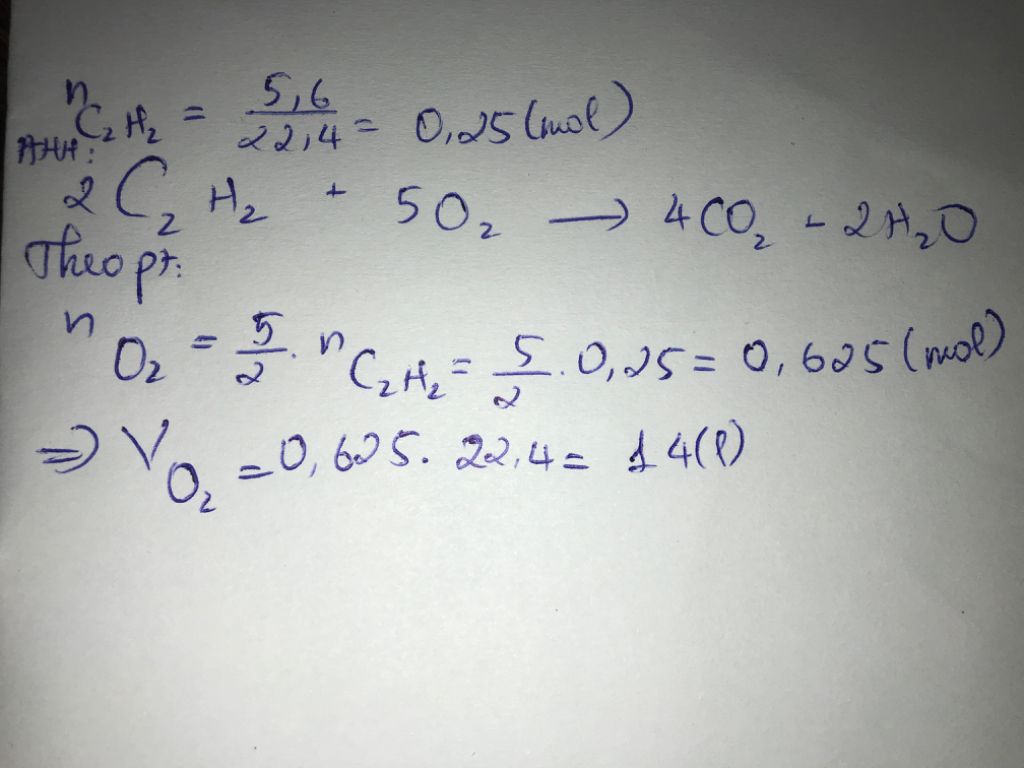 n C₂H₂ = 5,6/22,4 = 0,25 (mol)
PTHH:
2 C₂H₂ + 5O₂ → 4CO₂ - 2H₂O
Theo pt:
n O₂ = 5/2 . n C₂H₂ = 5/2 . 0,25 = 0,625 (mol)
⇒ V O₂ = 0,625 . 22,4 = 14(l)